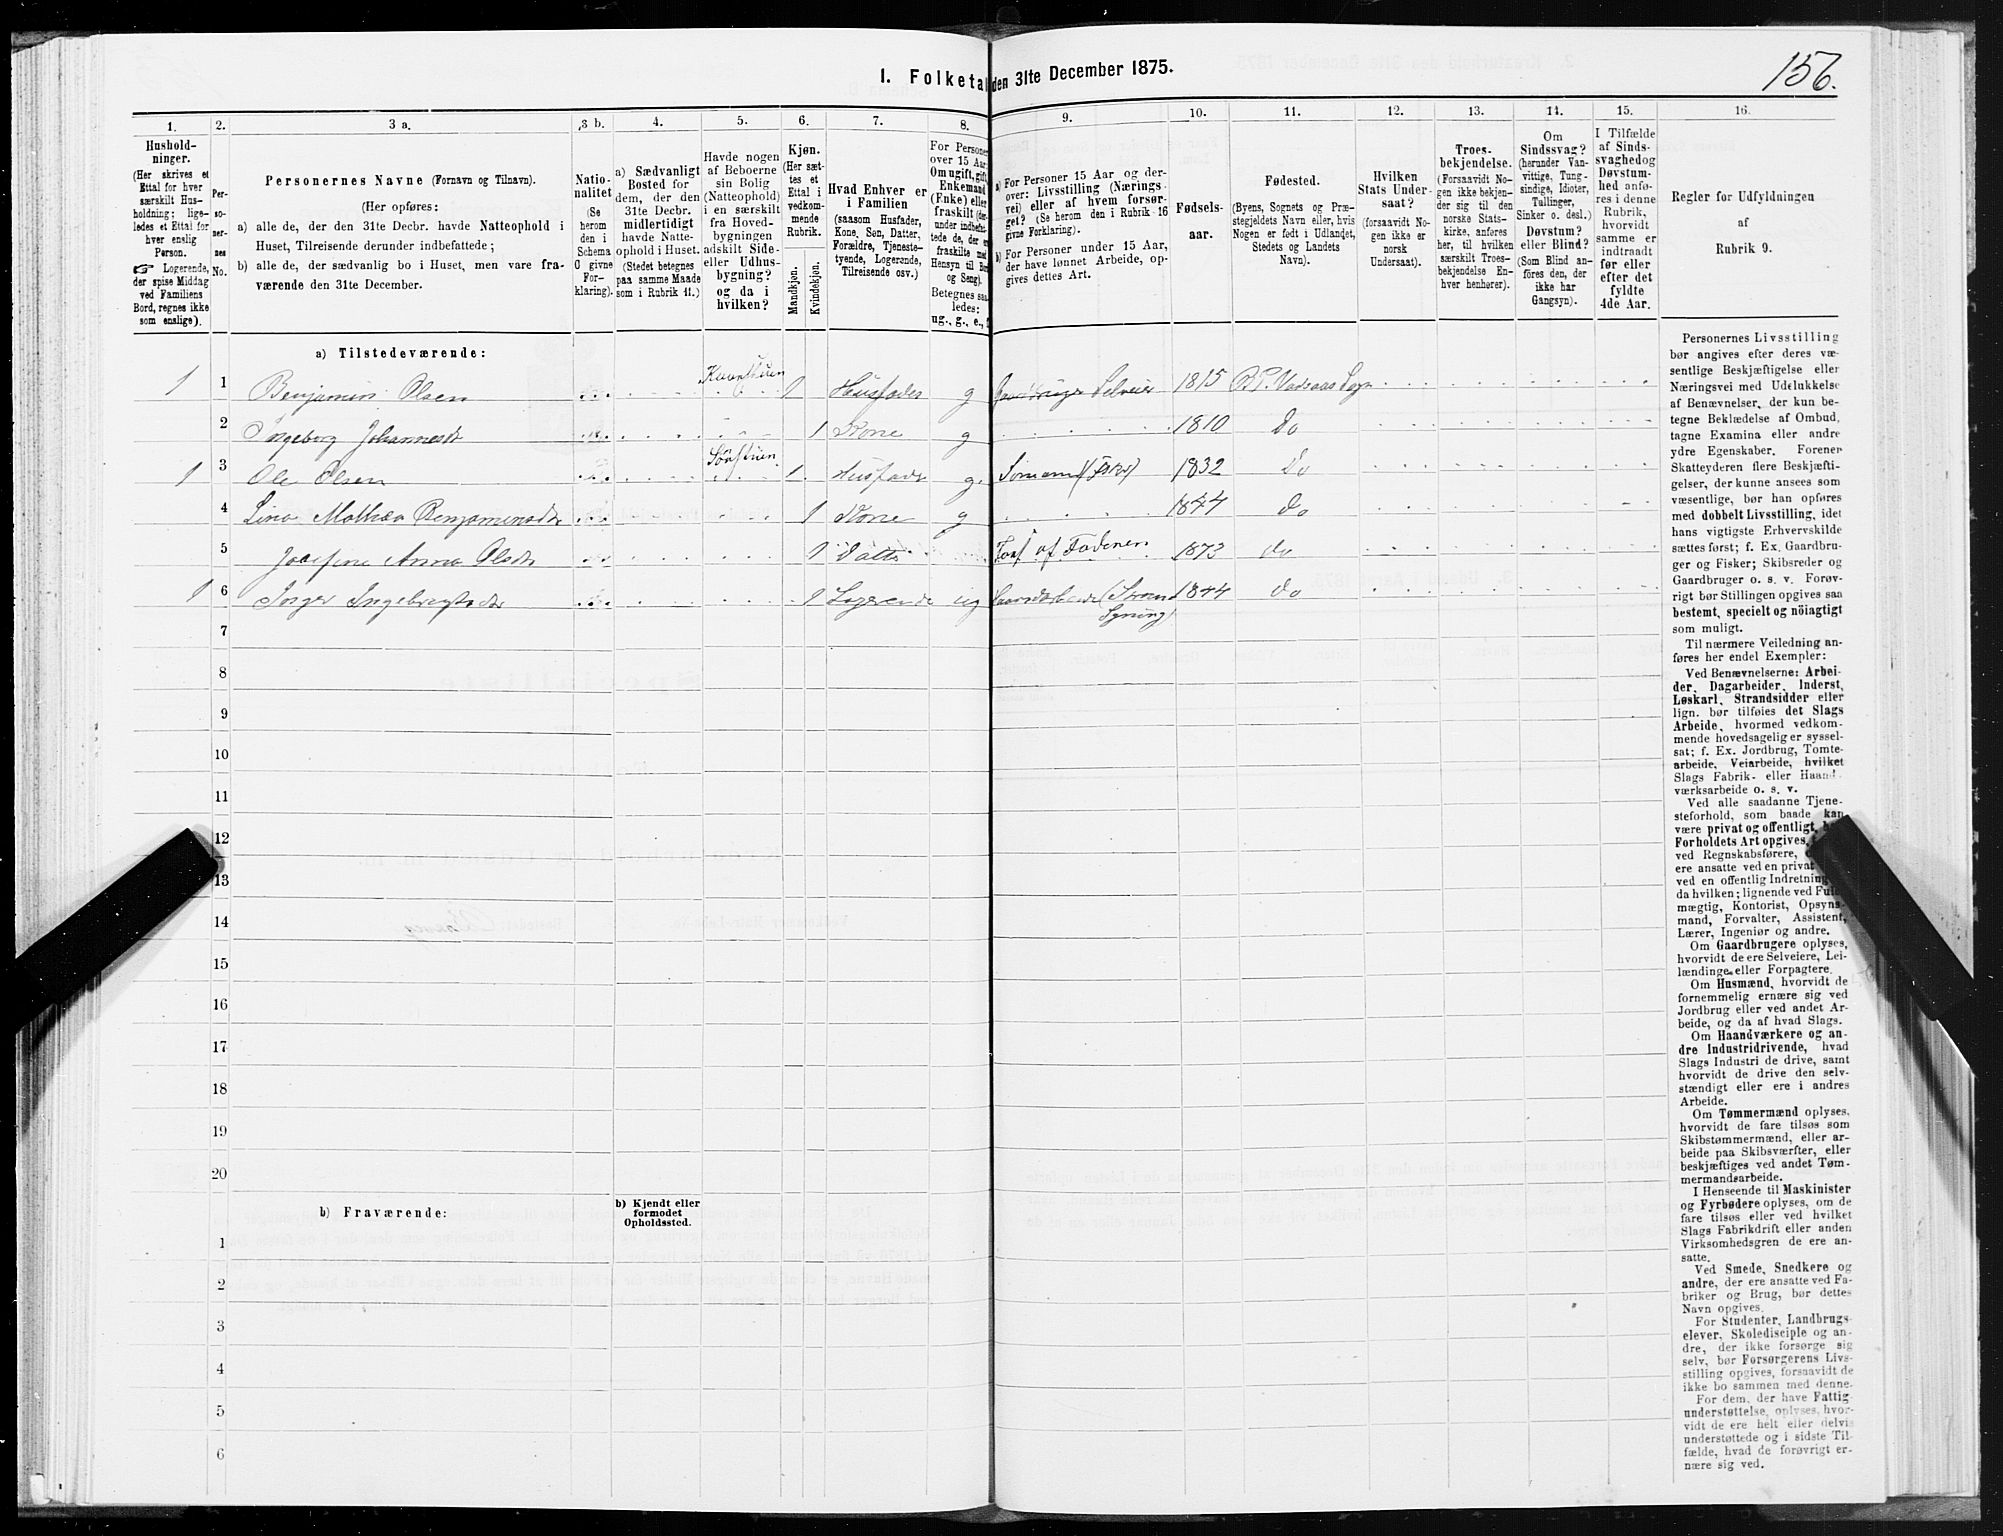 156.
I. Folketal den 31te December 1875.
1. 2. 3 a. 3 b. 4. 5. 6. 7. 8. 9. 10. 11. 12. 13. 14. 15. 16.
Hushold-
ninger.
(Her skrives et
Ettal for hver
særskilt Hus-
holdning; lige-
ledes et Ettal for
hver enslig
Person.
☞ Logerende,
der spise Middag
ved Familiens
Bord, regnes ikke
som enslige).
Per-
so-
ner-
nes
No.
Personernes Navne (Fornavn og Tilnavn).
(Her opføres:
a) alle de, der den 31te Decbr. havde Natteophold i
Huset, Tilreisende derunder indbefattede;
b) alle de, der sædvanlig bo i Huset, men vare fra-
værende den 31te December.
Natio-
nalitet
(Se
herom
den i
Schema
G givne
For-
klaring).
a) Sædvanligt
Bosted for
dem, der den
31te Decbr.
midlertidigt
havde Natte-
ophold i Huset.
(Stedet betegnes
paa samme Maade
som i Rubrik 11.)
Havde nogen
af Beboerne
sin Bolig
(Natteophold)
i en særskilt
fra Hoved-
bygningen
adskilt Side-
eller Udhus-
bygning?
og da i
hvilken?
Kjøn.
(Her sæt-
tes et
Ettal i
vedkom-
mende
Rubrik.
Mandkjøn.
Kvindekjøn.
Hvad Enhver er
i Familien
(saasom Husfader,
Kone, Søn, Datter,
Forældre, Tjeneste-
tyende, Logerende,
Tilreisende osv.)
For Personer
over 15 Aar:
Om ugift, gift,
Enkemand
(Enke) eller
fraskilt (der-
under indbefat-
tede de, der er
fraskilte med
Hensyn til Bord
og Seng).
Betegnes saa-
ledes:
ug., g., e.,
a) For Personer 15 Aar og der-
over: Livsstilling (Nærings-
vei) eller af hvem forsør-
get? (Se herom den i Rubrik 16
givne Forklaring).
b) For Personer under 15 Aar,
der have lønnet Arbeide, op-
gives dettes Art.
Fødsels-
aar.
Fødested.
(Byens, Sognets og Præ-
stegjeldets Navn eller, hvis
Nogen er født i Udlandet,
Stedets og Landets
Navn).
Hvilken
Stats Under-
saat?
(forsaavidt No-
gen ikke er
norsk
Undersaat).
Troes-
bekjendelse.
(Forsaavidt No-
gen ikke bekjen-
der sig til den
norske Stats-
kirke, anføres
her, til hvilken
særskilt Troes-
bekjendelse En-
hver henhører).
Om
Sindssvag?
(herunder Van-
vittige, Tung-
sindige, Idioter,
Tullinger,
Sinker o. desl.)
Døvstum?
eller Blind?
(Som Blind an-
føres den, der
ikke har
Gangsyn).
I Tilfælde
af Sinds-
svaghedog
Døvstum-
hed anfø-
res i denne
Rubrik,
hvorvidt
samme er
indtraadt
før eller
efter det
fyldte
4de Aar.
Regler for Udfyldningen
af
Rubrik 9.
a) Tilstedeværende:
1 1 Benjamin Olsen 1 Husfader g Selveier 1815 Vadsaas Sogn
2 Ingeborg Johannesdr 1 Kone g 1810 Do
1 3 Ole Olsen 1 Husfader g. Sömand (Fisker) 1832 Do
4 Lina Mathea Benjaminsdr 1 Kone g 1844 do
5 Josefine Anna Olsdr 1 Datter Fors. af Faderen 1873 do
1 6 Inger Ingebrigtsdr 1 Logerende ug 1844 do
Syning)
7
8
9
10
11
12
13
14
15
16
17
18
19
20
b) Fraværende:
b) Kjendt eller
formodet
Opholdssted.
1
2
3
4
5
6
Personernes Livsstilling
bør angives efter deres væ-
sentlige Beskjæftigelse eller
Næringsvei med Udelukkelse
af Benævnelser, der kun be-
tegne Beklædelse af Ombud,
tagne Examina eller andre
ydre Egenskaber. Forener
Skatteyderen flere Beskjæfti-
gelser, der kunne ansees som
væsentlige, bør han opføres
med dobbelt Livsstilling, idet
hans vigtigste Erhvervskilde
sættes først; f. Ex. Gaardbru-
ger og Fisker; Skibsreder og
Gaardbruger o. s. v. Forøv-
rigt bør Stillingen opgives saa
bestemt, specielt og nöiagtigt
som muligt.
Til nærmere Veiledning an-
føres her endel Exempler:
Ved Benævnelserne: Arbei-
der, Dagarbeider, Inderst,
Løskarl, Strandsidder eller
lign. bør tilføies det Slags
Arbeide, hvormed vedkom-
mende hovedsagelig er syssel-
sat; f. Ex. Jordbrug, Tomte-
arbeide, Veiarbeide, hvilket
Slags Fabrik- eller Haand-
værksarbeide o. s. v.
Ved alle saadanne Tjene-
steforhold, som baade kan
være privat og offentligt,
Forholdets Art opgives,
ved Regnskabsførere,
ere ansatte ved en privat
ved en offentlig Indretning
da hvilken; lignende ved Fuld-
mægtig, Kontorist, Opsyns-
mand, Forvalter, Assistent,
Lærer, Ingeniør og andre.
Om Gaardbrugere oplyses,
hvorvidt de ere Selveiere, Lei-
lændinge eller Forpagtere.
Om Husmænd, hvorvidt de
fornemmelig ernære sig ved
Jordbrug eller ved andet Ar-
beide, og da af hvad Slags.
Om Haandværkere og an-
dre Industridrivende, hvad
Slags Industri de drive, samt
hvorvidt de drive den selv-
stændigt eller ere i andres
Arbeide.
Om Tømmermænd oplyses,
hvorvidt de fare tilsøs som
Skibstømmermænd, eller ar-
beide paa Skibsværfter, eller
beskjæftiges ved andet Tøm-
mermandsarbeide.
I Henseende til Maskinister
og Fyrbødere oplyses, om de
fare tilsøs eller ved hvilket
Slags Fabrikdrift eller anden
Virksomhedsgren de ere an-
satte.
Ved Smede, Snedkere og
andre, der ere ansatte ved Fa-
briker og Brug, bør dettes
Navn opgives.
For Studenter, Landbrugs-
elever, Skoledisciple og an-
dre, der ikke forsørge sig
selv, bør Forsørgerens Livs-
stilling opgives, forsaavidt de
ikke bo sammen med denne.
For dem, der have Fattig-
understøttelse, oplyses, hvor-
vidt de ere helt eller delvis
understøttede og i sidste Til-
fælde, hvad de forøvrigt er-
nære sig ved.